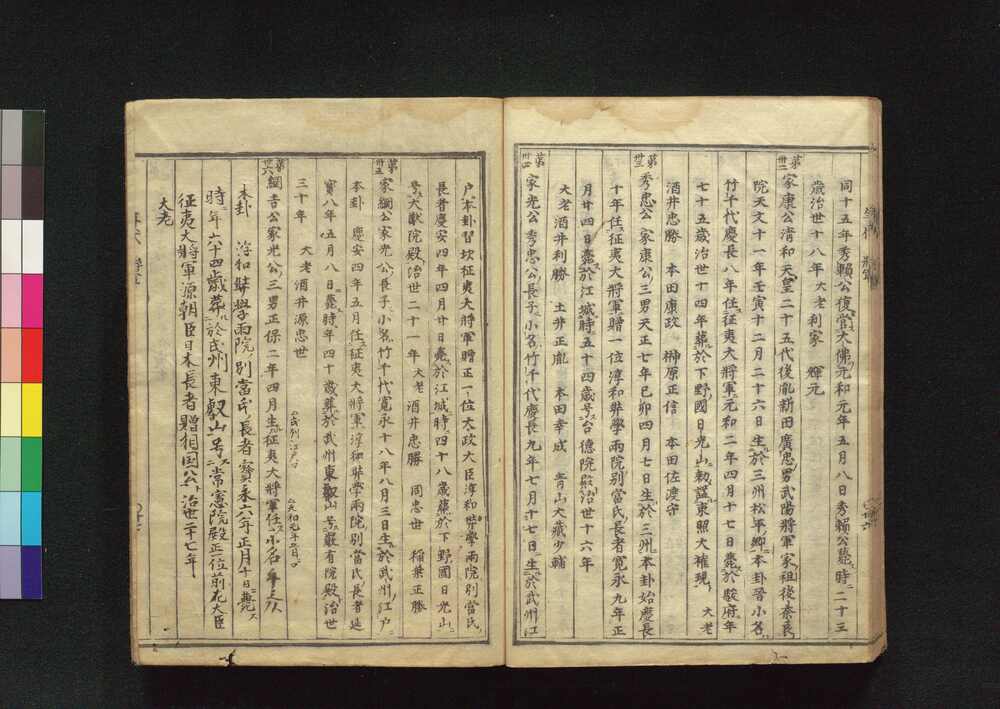 同十五年秀頼公復営大佛元和元年五月八日秀頼公薨時二十三
歳治世十八年大老利家 輝元
第卅二 家康公清和天皇二十五代後胤新田廣忠男武陽將軍家祖後奈良
院天文十一年壬寅十二月二十六日生於三州松平郷本卦晉小名
竹千代慶長八年任征夷大將軍元和二年四月十七日薨於駿府年
七十五歳治世十四年葬於下野國日光山勅謚東照大權現 大老
酒井忠勝 本田康政 榊原正信 本田佐渡守
第卅三 秀忠公家康公三男天正七年已卯四月七日生於三州本卦始慶長
十年任征夷大將軍贈一位淳和弉學兩院別當氏長者寛永九年正
月廿四日薨於江城時五十四歳号台德院殿治世十六年
大老酒井利勝 土井正胤 本田幸成 青山大藏少輔
第卅四 家光公秀忠公長子小名竹千代慶長九年七月十七日生於武州江
戸本卦習坎征夷大將軍贈正一位太政大臣淳和弉學兩院別當氏
長者慶安四年四月廿日薨於江城時四十八歳葬於下野國日光山
号大猷院殿治世二十一年大老酒井忠勝 同忠世 稲葉正勝
第卅五 家綱公家光公長子小名竹千代寛永十八年八月三日生於武州江戸
本卦 慶安四年五月任征夷大將軍淳和弉學兩院別當氏長者延
寳八年五月八日薨時年四十歳葬於武州東叡山号嚴有院殿治世
三十年 大老酒井源忠世
第卅六 綱吉公家光公三男正保二年四月生征夷大將軍任小名
本卦 淳和弉學兩院別當氏長者寳永六年正月十日薨
時年六十四歳葬於武州東叡山号常憲院殿正一位前左大臣
征夷大將軍源朝臣日本長者贈相国公治世二十七年
大老